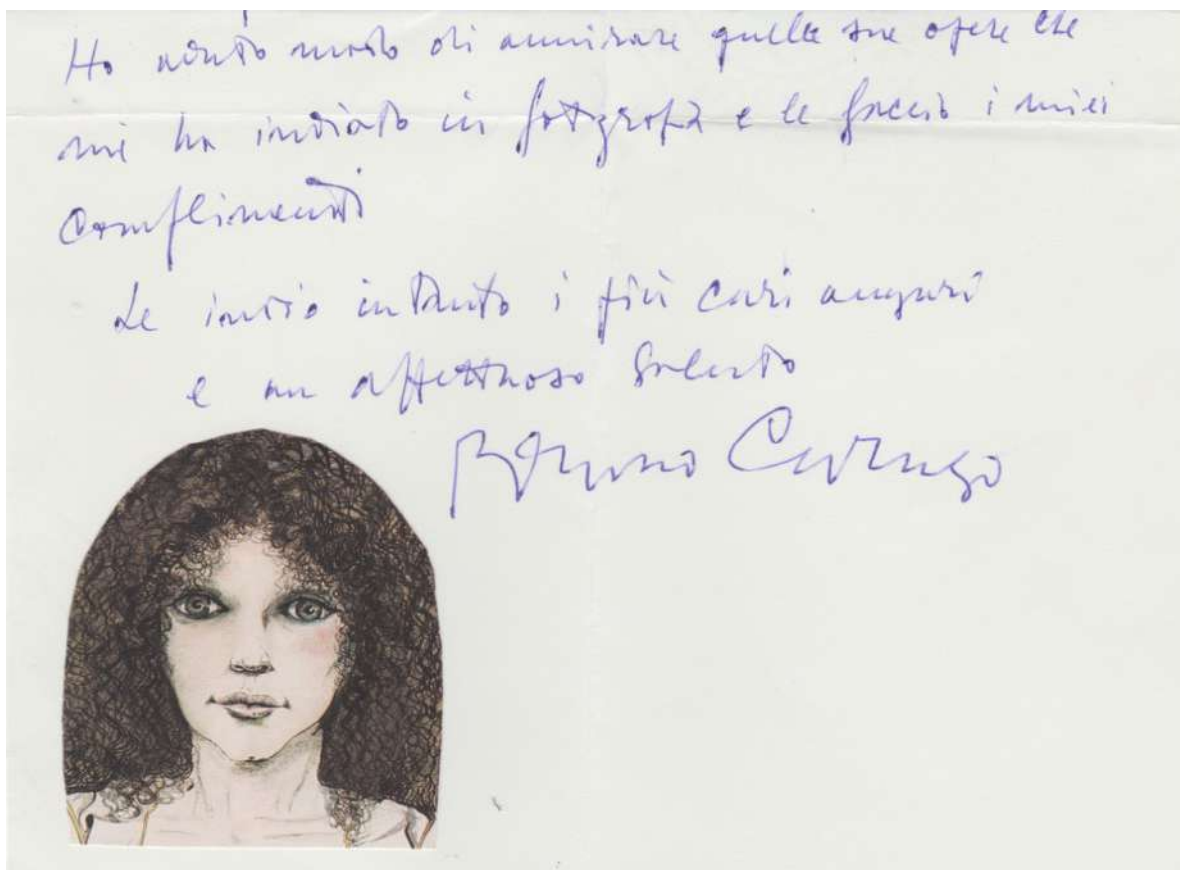 Ho avuto modo di ammirare quelle sue opere che
mi ha inviato in fotografia e le faccio i miei
complimenti
Le invio intanto i più cari auguri
e un affettuoso saluto
Bruno Caruso